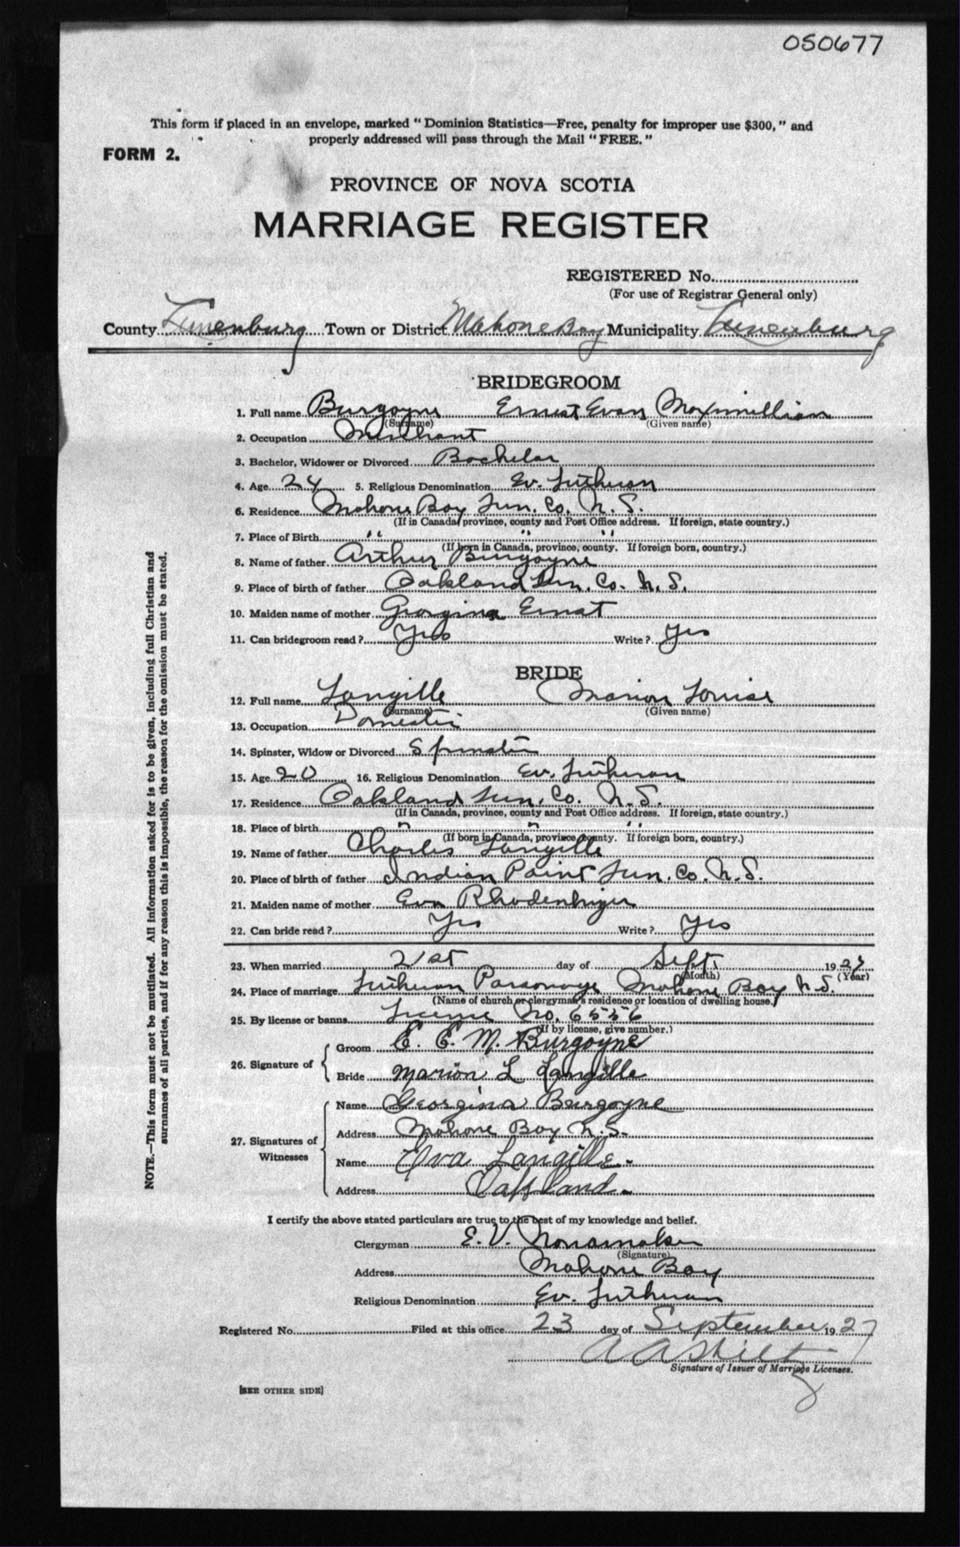 050677
This form if placed in an envelope, marked "Dominion Statistics—Free, penalty for improper use $300," and
properly addressed will pass through the Mail "FREE."
FORM 2.
PROVINCE OF NOVA SCOTIA
MARRIAGE REGISTER
REGISTERED No.
(For use of Registrar General only)
County Lunenburg Town or District Mahone Bay Municipality Lunenburg
BRIDEGROOM
1. Full name Burgoyne Ernest Evan Maximillian
(Surname) (Given name)
2. Occupation Merchant
3. Bachelor, Widower or Divorced Bachelor
4. Age 24 5. Religious Denomination Ev. Lutheran
6. Residence Mahone Bay Lun. Co. N. S.
(If in Canada, province, county and Post Office address. If foreign, state country.)
7. Place of Birth " " "
(If born in Canada, province, county. If foreign born, country.)
8. Name of father Arthur Burgoyne
9. Place of birth of father Oakland Lun. Co. N. S.
10. Maiden name of mother Georgina Ernst
11. Can bridegroom read? Yes Write? Yes
BRIDE
12. Full name Langille Marion Louise
(Surname) (Given name)
13. Occupation Domestic
14. Spinster, Widow or Divorced Spinster
15. Age 20 16. Religious Denomination Ev. Lutheran
17. Residence Oakland Lun. Co. N. S.
(If in Canada, province, county and Post Office address. If foreign, state country.)
18. Place of birth " " "
(If born in Canada, province, county. If foreign born, country.)
19. Name of father Charles Langille
20. Place of birth of father Indian Point Lun. Co. N. S.
21. Maiden name of mother Eva Rhodenhizer
22. Can bride read? Yes Write? Yes
23. When married 21st day of Sept. 1927
(Month) (Year)
24. Place of marriage Lutheran Parsonage Mahone Bay N.S.
(Name of church or clergyman's residence or location of dwelling house.)
25. By license or banns License No. 6556
(If by license, give number.)
26. Signature of
Groom E. E. M. Burgoyne
Bride Marion L Langille
27. Signatures of Witnesses
Name Georgina Burgoyne
Address Mahone Bay N.S.
Name Eva Langille
Address Oakland
I certify the above stated particulars are true to the best of my knowledge and belief.
Clergyman E. V. Nonamaker
(Signature)
Address Mahone Bay
Religious Denomination Ev. Lutheran
Registered No. Filed at this office 23 day of September 1927
Signature of Issuer of Marriage Licenses.
[SEE OTHER SIDE]
NOTE.—This form must not be mutilated. All information asked for is to be given, including full Christian and
surnames of all parties, and if for any reason this is impossible, the reason for the omission must be stated.